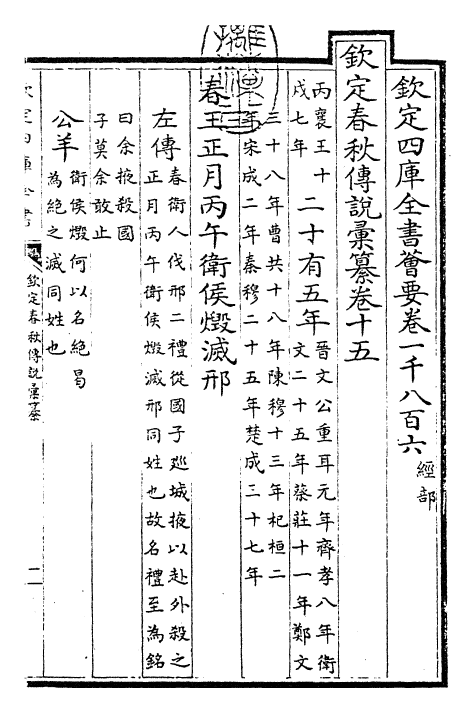 欽定四庫全書薈要卷一千八百六 經部
欽定春秋傳說彙纂卷十五
丙襄王十
戌七年
二十有五年
晉文公重耳元年齊孝八年衛
文二十五年蔡莊十一年鄭文
三十八年曹共十八年陳穆十三年杞桓二
年宋成二年秦穆二十五年楚成三十七年
春王正月丙午衛侯燬滅邢
左傳
春衛人伐邢二禮從國子巡城掖以赴外殺之
正月丙午衛侯燬滅邢同姓也故名禮至為銘
曰余掖殺國
子莫余敢止
公羊
衛侯燬何以名絕曷
為絕之滅同姓也
欽定四庫全書
欽定春秋傳說彙纂